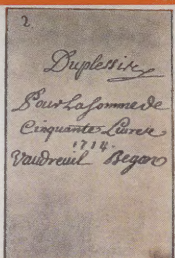 2.
Duplessis
Pour La somme de
Cinquante Livres
1714.
Vaudreuil Begon